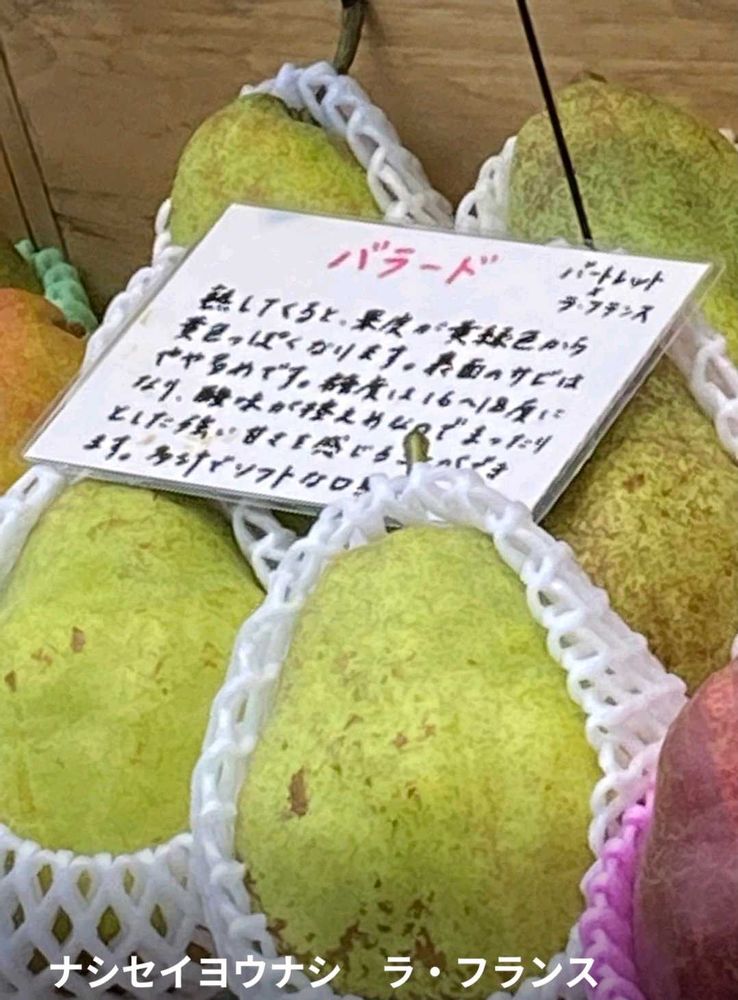 バラード
バートレット
×
ラ・フランス
熟してくると、果皮が黄緑色から
黄色っぽくなります。表面のサビは
やや多めです。糖度は16〜18度に
なり、酸味が控えめなのでまったり
とした強い甘さを感じる
ます。多汁でソフトな口
ナシセイヨウナシ　ラ・フランス